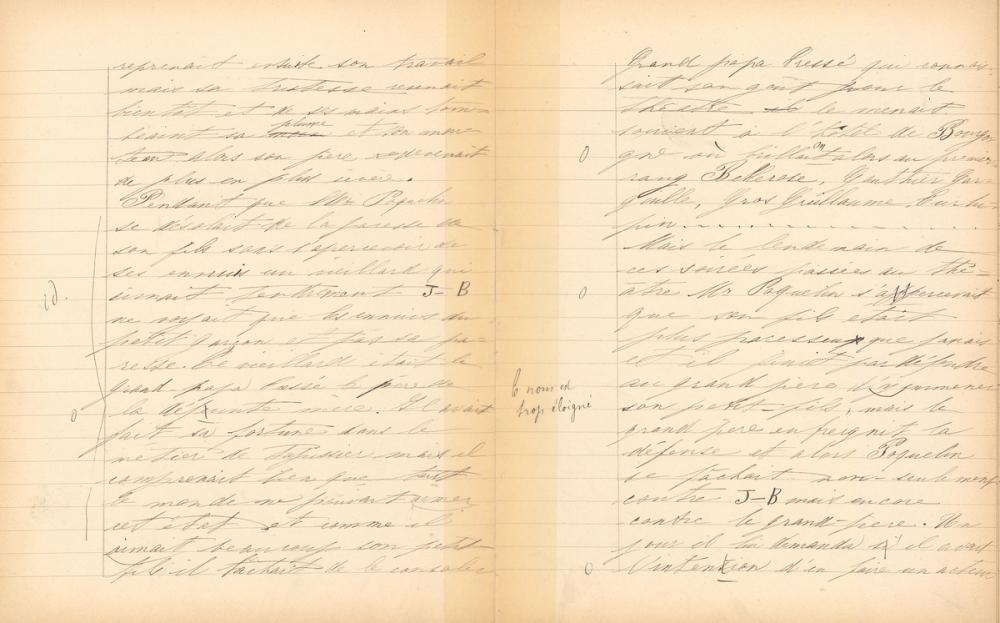 reprenait ensuite son travail
mais sa tristesse revenait
bientot et de ses mains tom-
baient sa plume et son mar-
teau alors son père redevenait
de plus en plus sévère.
Pendant que Mr Poquelin
se désolait de la paresse de
son fils sans s'apercevoir de
ses ennuis un vieillard qui
id.
aimait tendrement J-B
ne voyait que les ennuis du
petit garçon et pas sa pa-
resse. Ce vieillard était le
grand papa Cressé le père de
0 la défunte mère. Il avait
fait sa fortune dans le
métier de tapissier mais il
comprenait bien que tout
le monde ne pouvait aimer
cet état et comme il
aimait beaucoup son petit
fils il tâchait de le consoler
le nom est
trop éloigné
Grand papa Cressé qui connais-
sait son goût pour le
théâtre le menait
souvent à l'hôtel de Bourgo
0 gne où brillaient alors au premier
rang Bellerose, Gauthier Gar-
guille, Gros Guillaume, Turlu-
pin..............
Mais le lendemain de
ces soirées passées au thé-
0 atre Mr Poquelin s'appercevait
que son fils était
plus paresseux que jamais
et il finit par défendre
au grand père d'y emmener
son petit-fils, mais le
grand père enfreignit la
défense et alors Poquelin
se fâchait non-seulement
contre J-B mais encore
contre le grand-père. Un
jour il lui demanda s'il avait
0 l'intention d'en faire un acteur